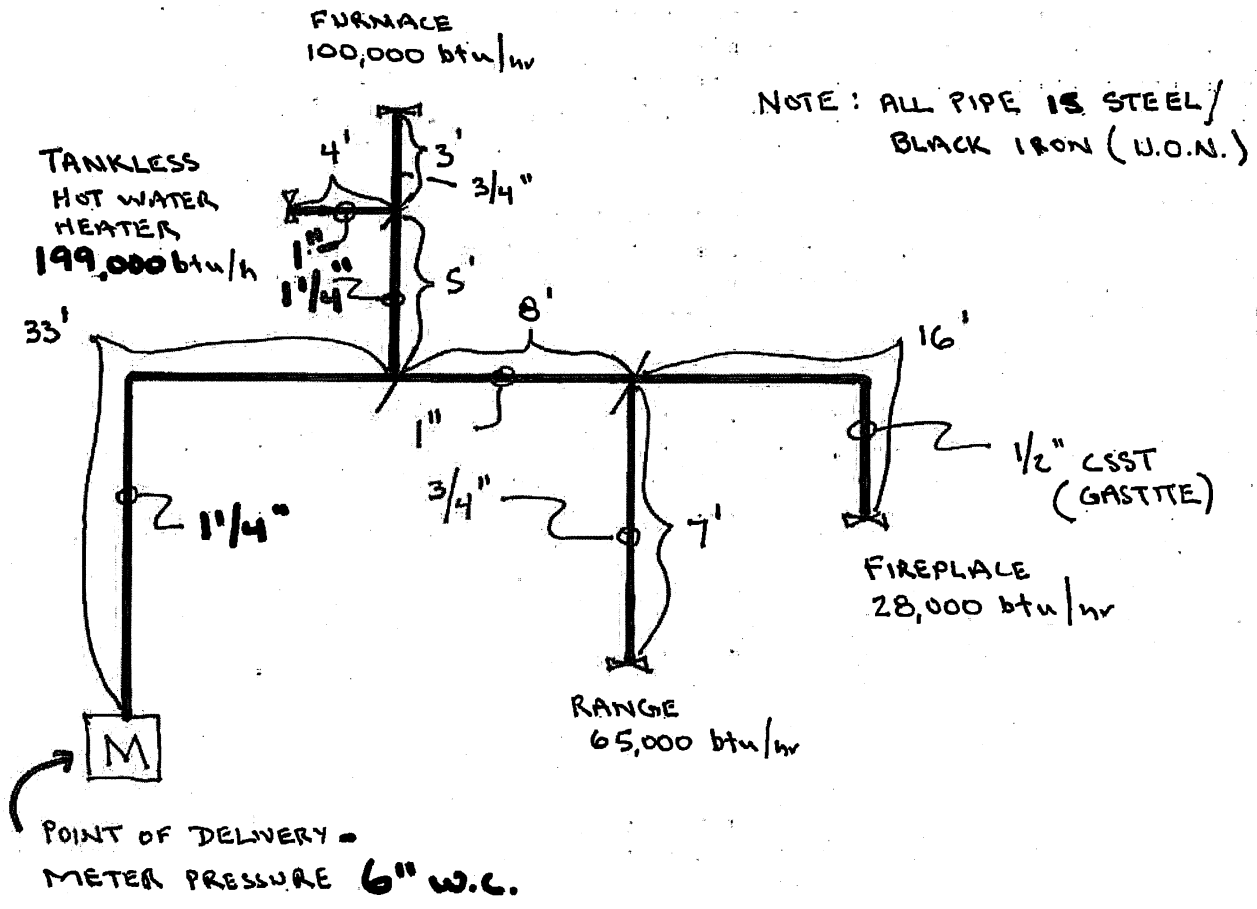 FURNACE
100,000 btu/hr
NOTE: ALL PIPE IS STEEL/
BLACK IRON (U.O.N.)
TANKLESS
HOT WATER
HEATER
199,000 btu/h
4'
3'
3/4"
1"
1 1/4"
5'
33'
8'
16'
1"
1 1/4"
3/4"
7'
1/2" CSST
(GASTITE)
FIREPLACE
28,000 btu/hr
RANGE
65,000 btu/hr
M
POINT OF DELIVERY -
METER PRESSURE 6" W.C.